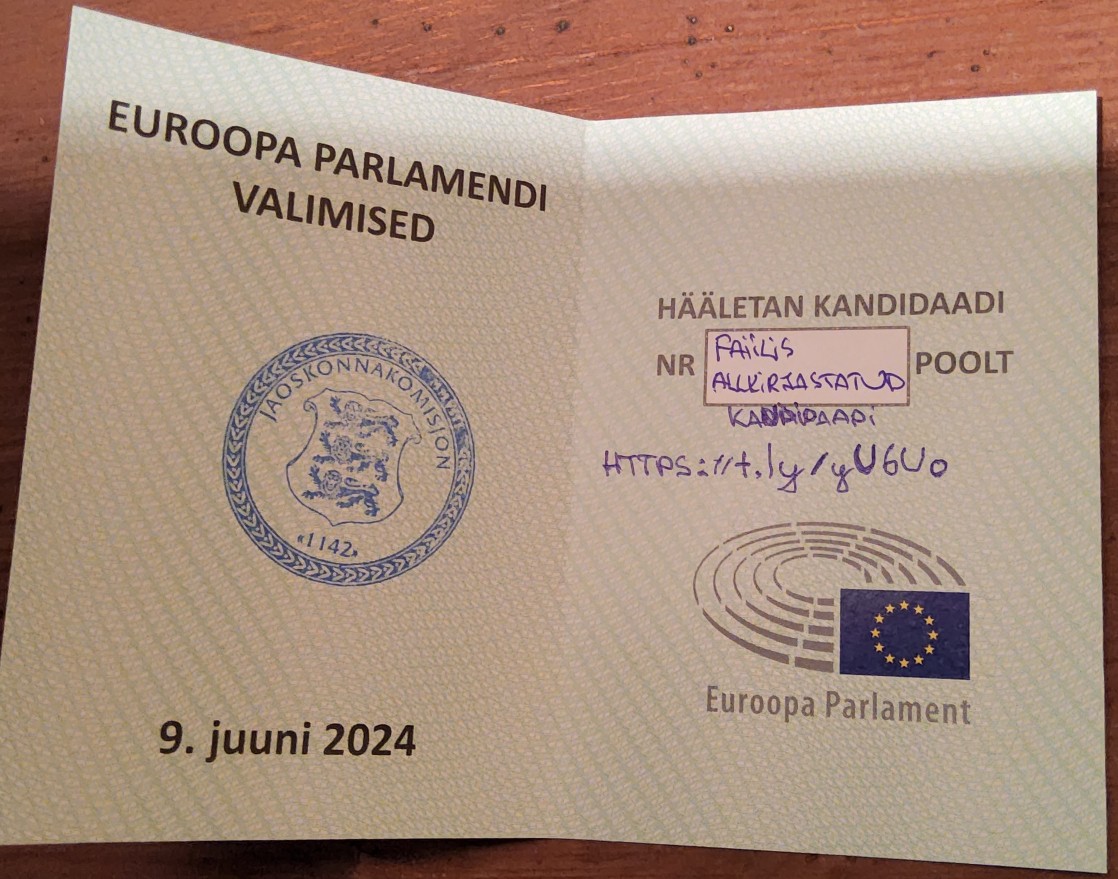 EUROOPA PARLAMENDI
VALIMISED
JAOSKONNAKOMISJON
«1142»
9. juuni 2024
HÄÄLETAN KANDIDAADI
NR FAiiLiS
ALLKiRJASTATUD POOLT
KANDiDAADi
HTTPS://t.ly/yU6Uo
Euroopa Parlament